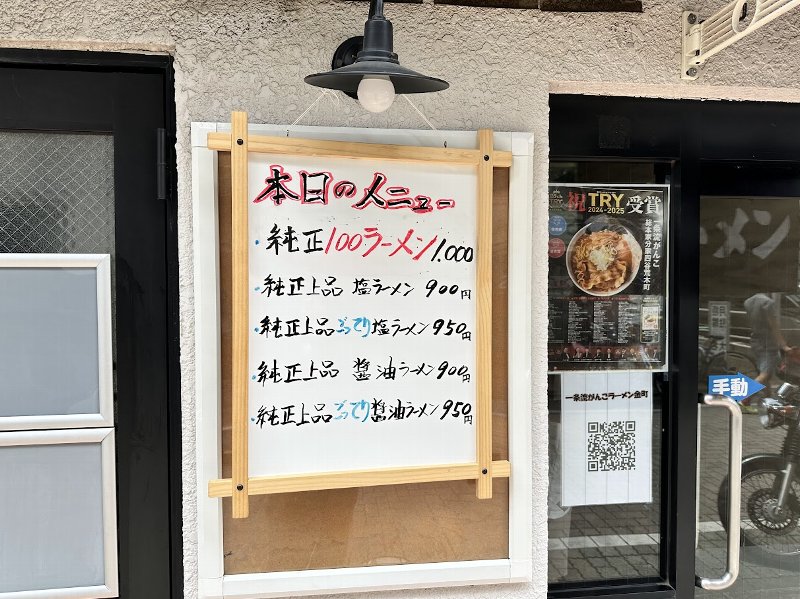 本日のメニュー
・純正100ラーメン1.000
・純正上品 塩ラーメン 900円
・純正上品こってり塩ラーメン950円
・純正上品 醤油ラーメン900円
・純正上品こってり醤油ラーメン950円
祝 TRY 受賞
2024-2025
一条流がんこ
総本家分家四谷荒木町
手動
一条流がんこラーメン金町
メン